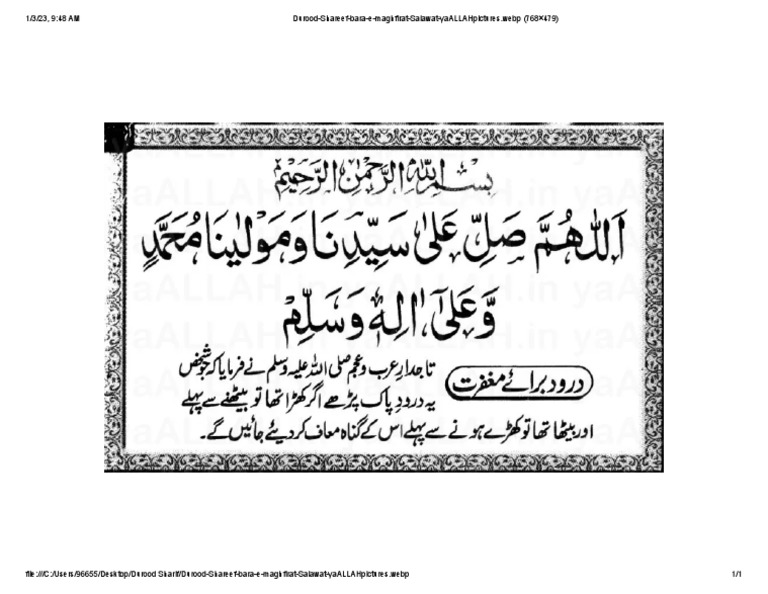 1/3/23, 9:48 AM
Durood-Shareef-bara-e-maghfirat-Salawat-yaALLAHpictures.webp (768×479)
بِسْمِ اللهِ الرَّحْمٰنِ الرَّحِيْمِ
اَللّٰهُمَّ صَلِّ عَلٰى سَيِّدِنَا وَمَوْلٰينَا مُحَمَّدٍ
وَّعَلٰٓى اٰلِهٖ وَسَلِّمْ
درود برائے مغفرت
تاجدارِ عرب و عجم صلی اللہ علیہ وسلم نے فرمایا کہ جو شخص
یہ درودِ پاک پڑھے اگر کھڑا تھا تو بیٹھنے سے پہلے
اور بیٹھا تھا تو کھڑے ہونے سے پہلے اس کے گناہ معاف کردیئے جائیں گے۔
yaALLAH.in
file:///C:/Users/96655/Desktop/Durood Sharif/Durood-Shareef-bara-e-maghfirat-Salawat-yaALLAHpictures.webp
1/1